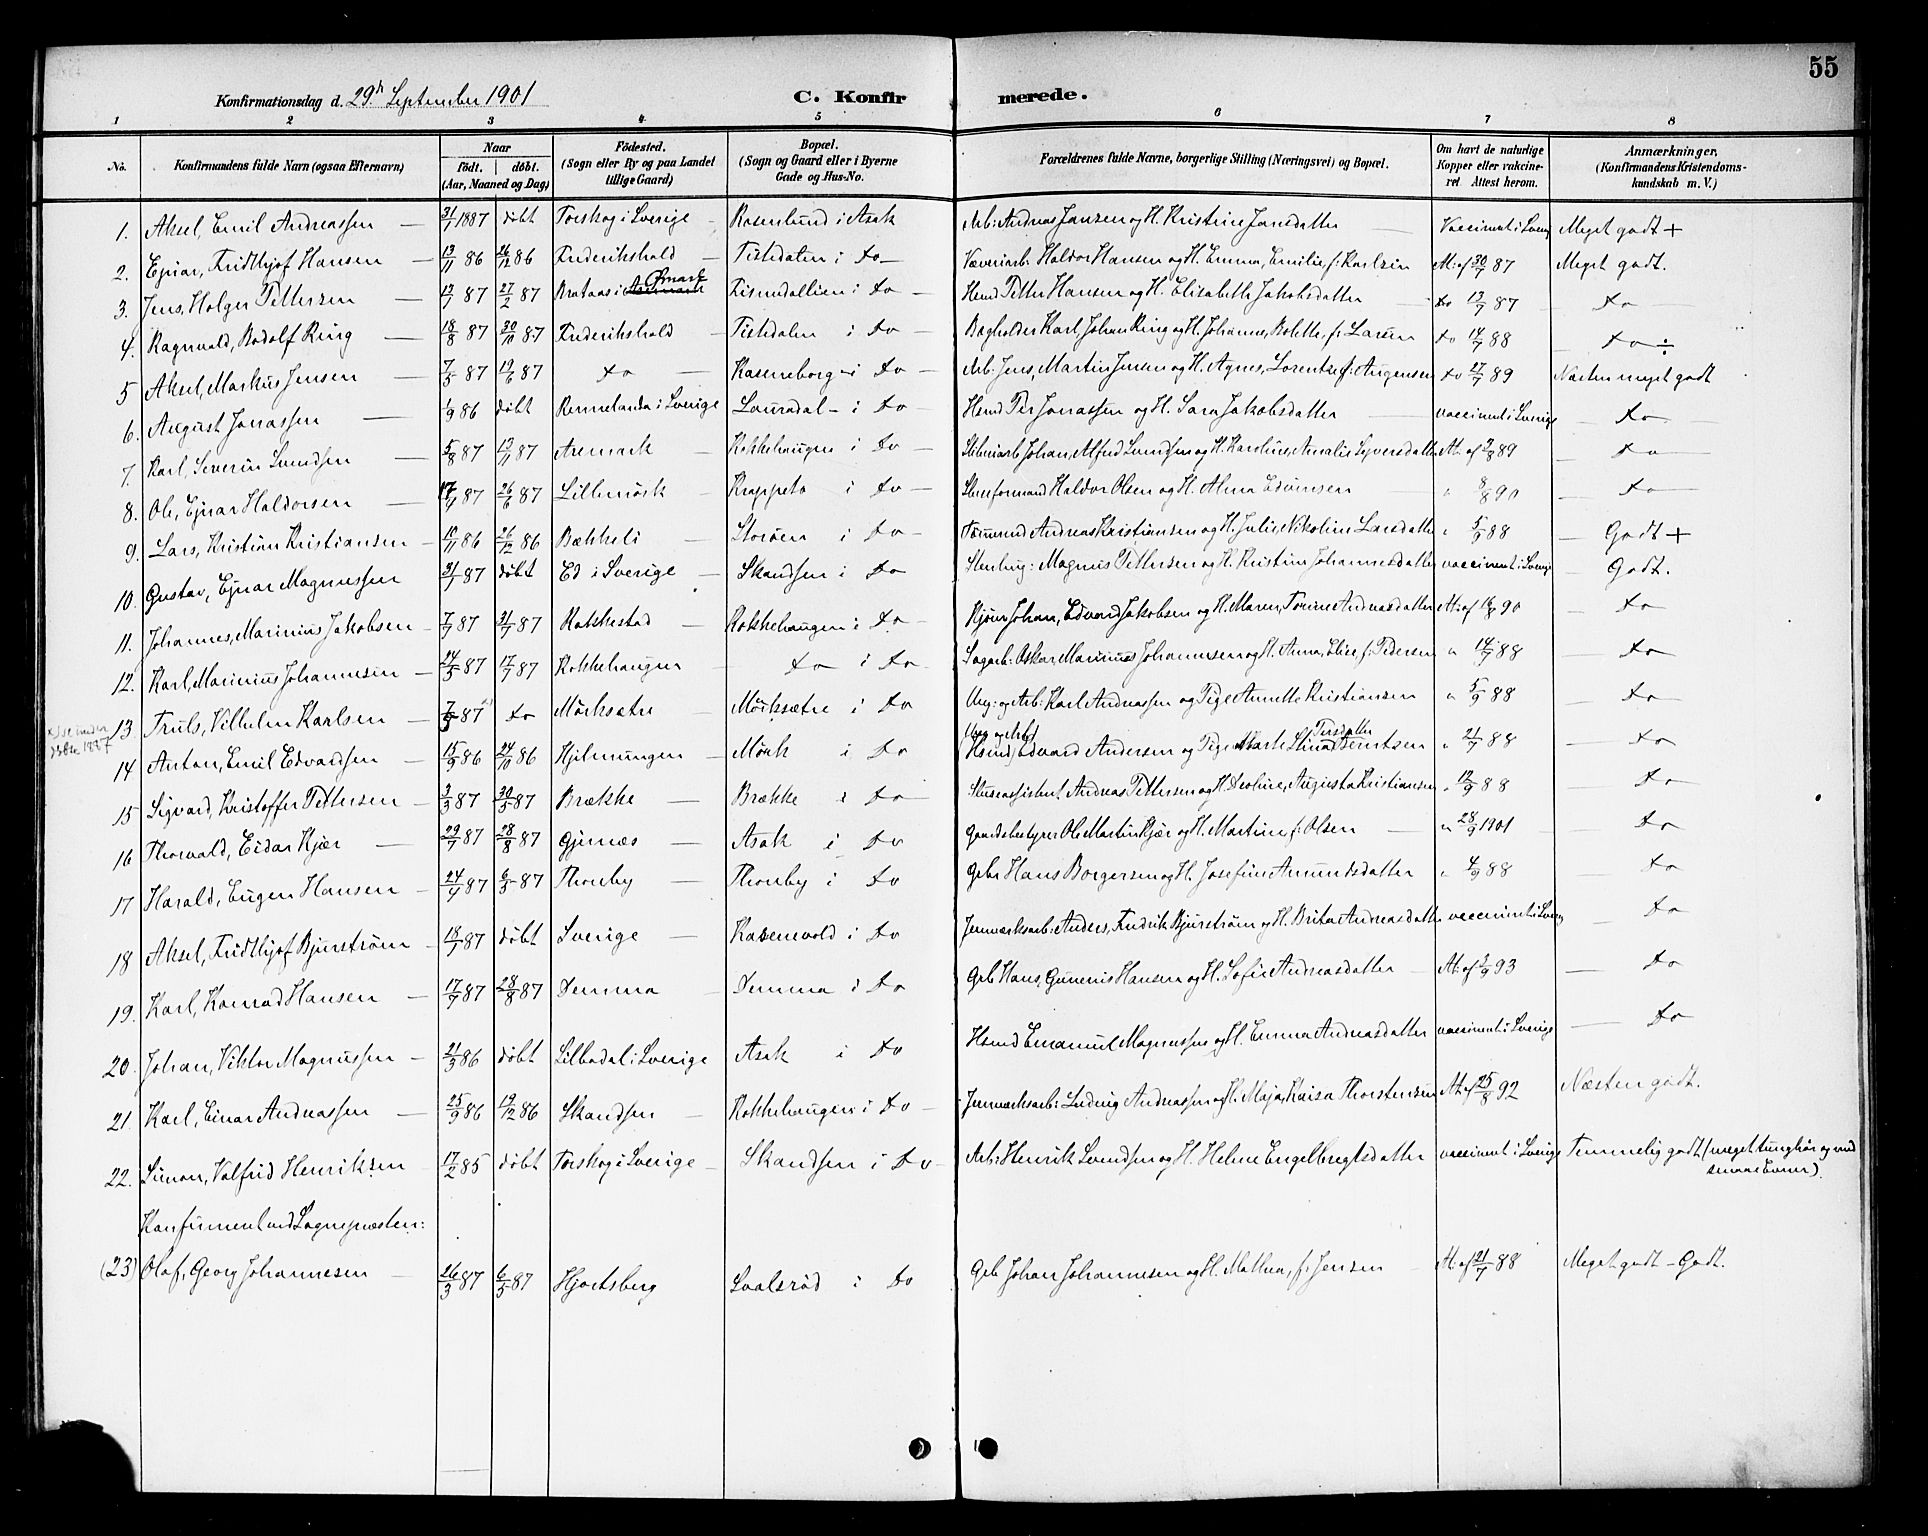 55
Konfirmationsdag d. 29de September 1901 C. Konfirmerede.
1 2 3 4 5 6 7 8
No. Konfirmandens fulde Navn (ogsaa Efternavn) Naar født. døbt. (Aar, Maaned og Dag) Födested. (Sogn eller By og paa Landet tillige Gaard) Bopæl. (Sogn og Gaard eller i Byerne Gade og Hus-No. Forældrenes fulde Navne, borgerlige Stilling (Næringsvei) og Bopæl. Om havt de naturlige Kopper eller vakcineret Attest herom. Anmærkninger, (Konfirmandens Kristendomskundskab m. V.)
1. Aksel, Emil Andreassen 31/7 1887 døbt Torskog i Sverige Rosenlund i Asak Arb: Andreas Jansen og H. Kristine Jansdatter Vaccineret i Sverig Meget godt +
2. Ejnar, Fridthjof Hansen 13/11 86 26/12 86 Frederikshald Tistedalen i do Væveriarb: Haldor Hansen og H. Emma, Emilie, f: Karlsen At: af 30/7 87 Meget godt.
3. Jens, Holger Pettersen 13/1 87 27/2 87 Brataas i Ømark Risendallien i do Hsmd Petter Hansen og H. Elisabeth Jakobsdatter do 13/9 87 do
4. Ragnvald, Rodolf Ring 18/8 87 30/10 87 Frederikshald Tistedalen i do Bogholder Karl Johan Ring og H. Johanne, Bolette, f: Larsen do 14/7 88 do ÷
5 Aksel, Markus Jensen 7/5 87 19/6 87 do Kaseneborg i do Arb: Jens, Martin Jensen og H. Agnes, Lorentse f: Augensen do 27/7 89 Næsten meget godt
6. August Jonassen 1/9 86 døbt Rennelanda i Sverige Lauradal i do Hsmd Per Jonassen og H. Sara Jakobsdatter vaccineret i Sverige do
7. Karl, Severin Svendsen 5/8 87 13/11 87 Aremark Rokkehaugen i do Sliberiarb Johan, Alfred Svendsen og H. Karoline, Amalie Syversdatter At. af 2/8 89 do
8. Ole, Ejnar Haldorsen 17/4 87 26/6 87 Lillemörk Krappeto i do Stueformand Haldor Olsen og H. Alma Edvinsen " 8/8 90 do
9. Lars, Kristian Kristiansen 10/11 86 26/12 86 Bækkeli Storöen i do Tømmermd Andreas Kristiansen og H. Julie, Nikoline Larsdatter " 5/9 88 Godt +
10. Gustav, Ejnar Magnussen 31/1 87 døbt Ed i Sverige Skandsen i do Stenhug: Magnus Pettersen og H. Kristine Johannesdatter vaccineret i Sverige Godt.
11. Johannes, Marinius Jakobsen 7/7 87 31/7 87 Rakkestad Rokkehaugen i do Kjører Johan, Edvard Jakobsen og H. Maren, Torine Andreasdatter At: af 14/8 90 do
12. Karl, Marinius Johannesen 24/5 87 17/7 87 Rokkehaugen do i do Sagarb: Oskar, Marinius Johannesen og H. Anna, Elise, f: Pedersen " 14/7 88 do
13 Truls, Vilhelm Karlsen 7/5 87 do Mörksætre Mörksætre i do Ung: og Arb: Karl Andreassen og Pige Annette Kristiansen " 5/9 88 do
14 Anton, Emil Edvardsen 15/9 86 24/10 86 Hjelmungen Mörk i do (Ung og Arb) Hsmd Edvard Andersen og Pige Marte Stina " 21/7 88 do
15 Sigvard, Kristoffer Pettersen 3/3 87 30/5 87 Brække Brække i do Slusassistent Andreas Pettersen og H. Severine, Augusta Kristiansen " 12/9 88 do
16 Thorvald, Eidar Kjær 29/7 87 28/8 87 Gjernæs Asak i do Gaardsbestyrer Ole Martin Kjær og H. Martine, f: Olsen " 28/9 1901 do
17 Harald, Eugen Hansen 24/4 87 6/5 87 Thorsby Thorsby i do Gbr Hans Borgersen og H. Josefine Amundsdatter " 4/9 88 do
18 Aksel, Fridthjof Bjurström 18/1 87 døbt Sverige Kasenvold i do Jernværksarb: Anders, Fredrik Bjurström og H. Brita Andreasdatter vaccineret i Sverig do
19. Karl, Konrad Hansen 17/7 87 28/8 87 Demma Demma i do Gbr Hans, Gunerius Hansen og H. Sofie Andreasdatter At: af 2/9 93 do
20. Johan, Viktor Magnussen 21/3 86 døbt Lilbodal i Sverige Asak i do Hsmd Emanuel Magnussen og H. Emma Andreasdatter vaccineret i Sverige do
21. Karl, Einar Andreassen 25/9 86 19/12 86 Skandsen Rokkehaugen i do Jernværksarb: Ludvig Andreassen og H. Maja, Kaisa Thorstensen At. af 25/8 92 Næsten godt.
22. Simon, Valfrid Henriksen 17/2 85 døbt Torskog i Sverige Skandsen i do Arb: Henrik Svendsen og H. Helene Engelbregtsdatter vaccineret i Sverige Temmelig godt (meget tunghør og med smaa Evner).
Konfirmeret ved Sognepresten:
(23) Olaf, Georg Johannesen 26/3 87 6/5 87 Hjortsberg Svalsröd i do Gbr Johan Johannesen og H. Mathea, f: Jensen At. af 21/7 88 Meget godt – Godt.